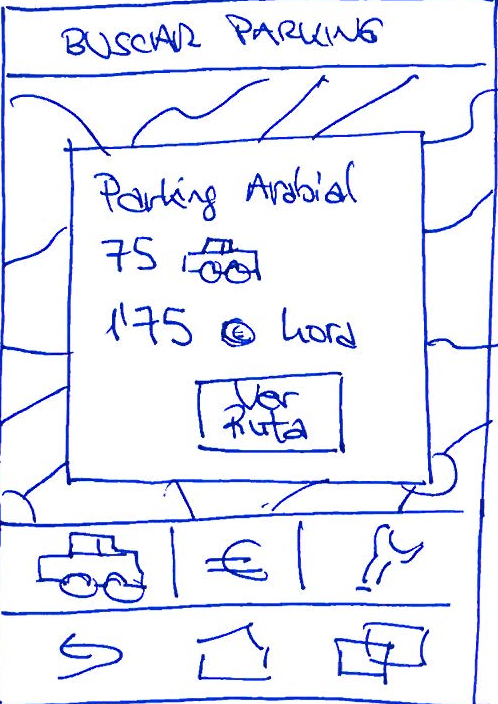 BUSCAR PARKING
Parking Arabial
75
1'75 € hora
Ver
Ruta
€